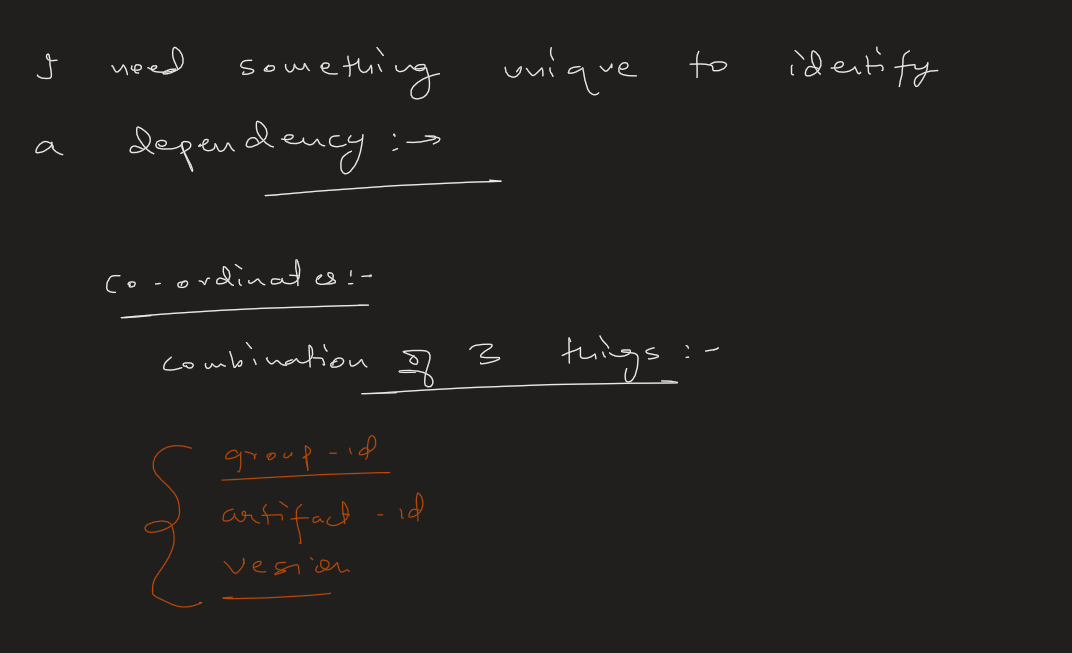 I need something unique to identify
a dependency :→
co-ordinates :-
combination of 3 things :-
group-id
artifact-id
vesion